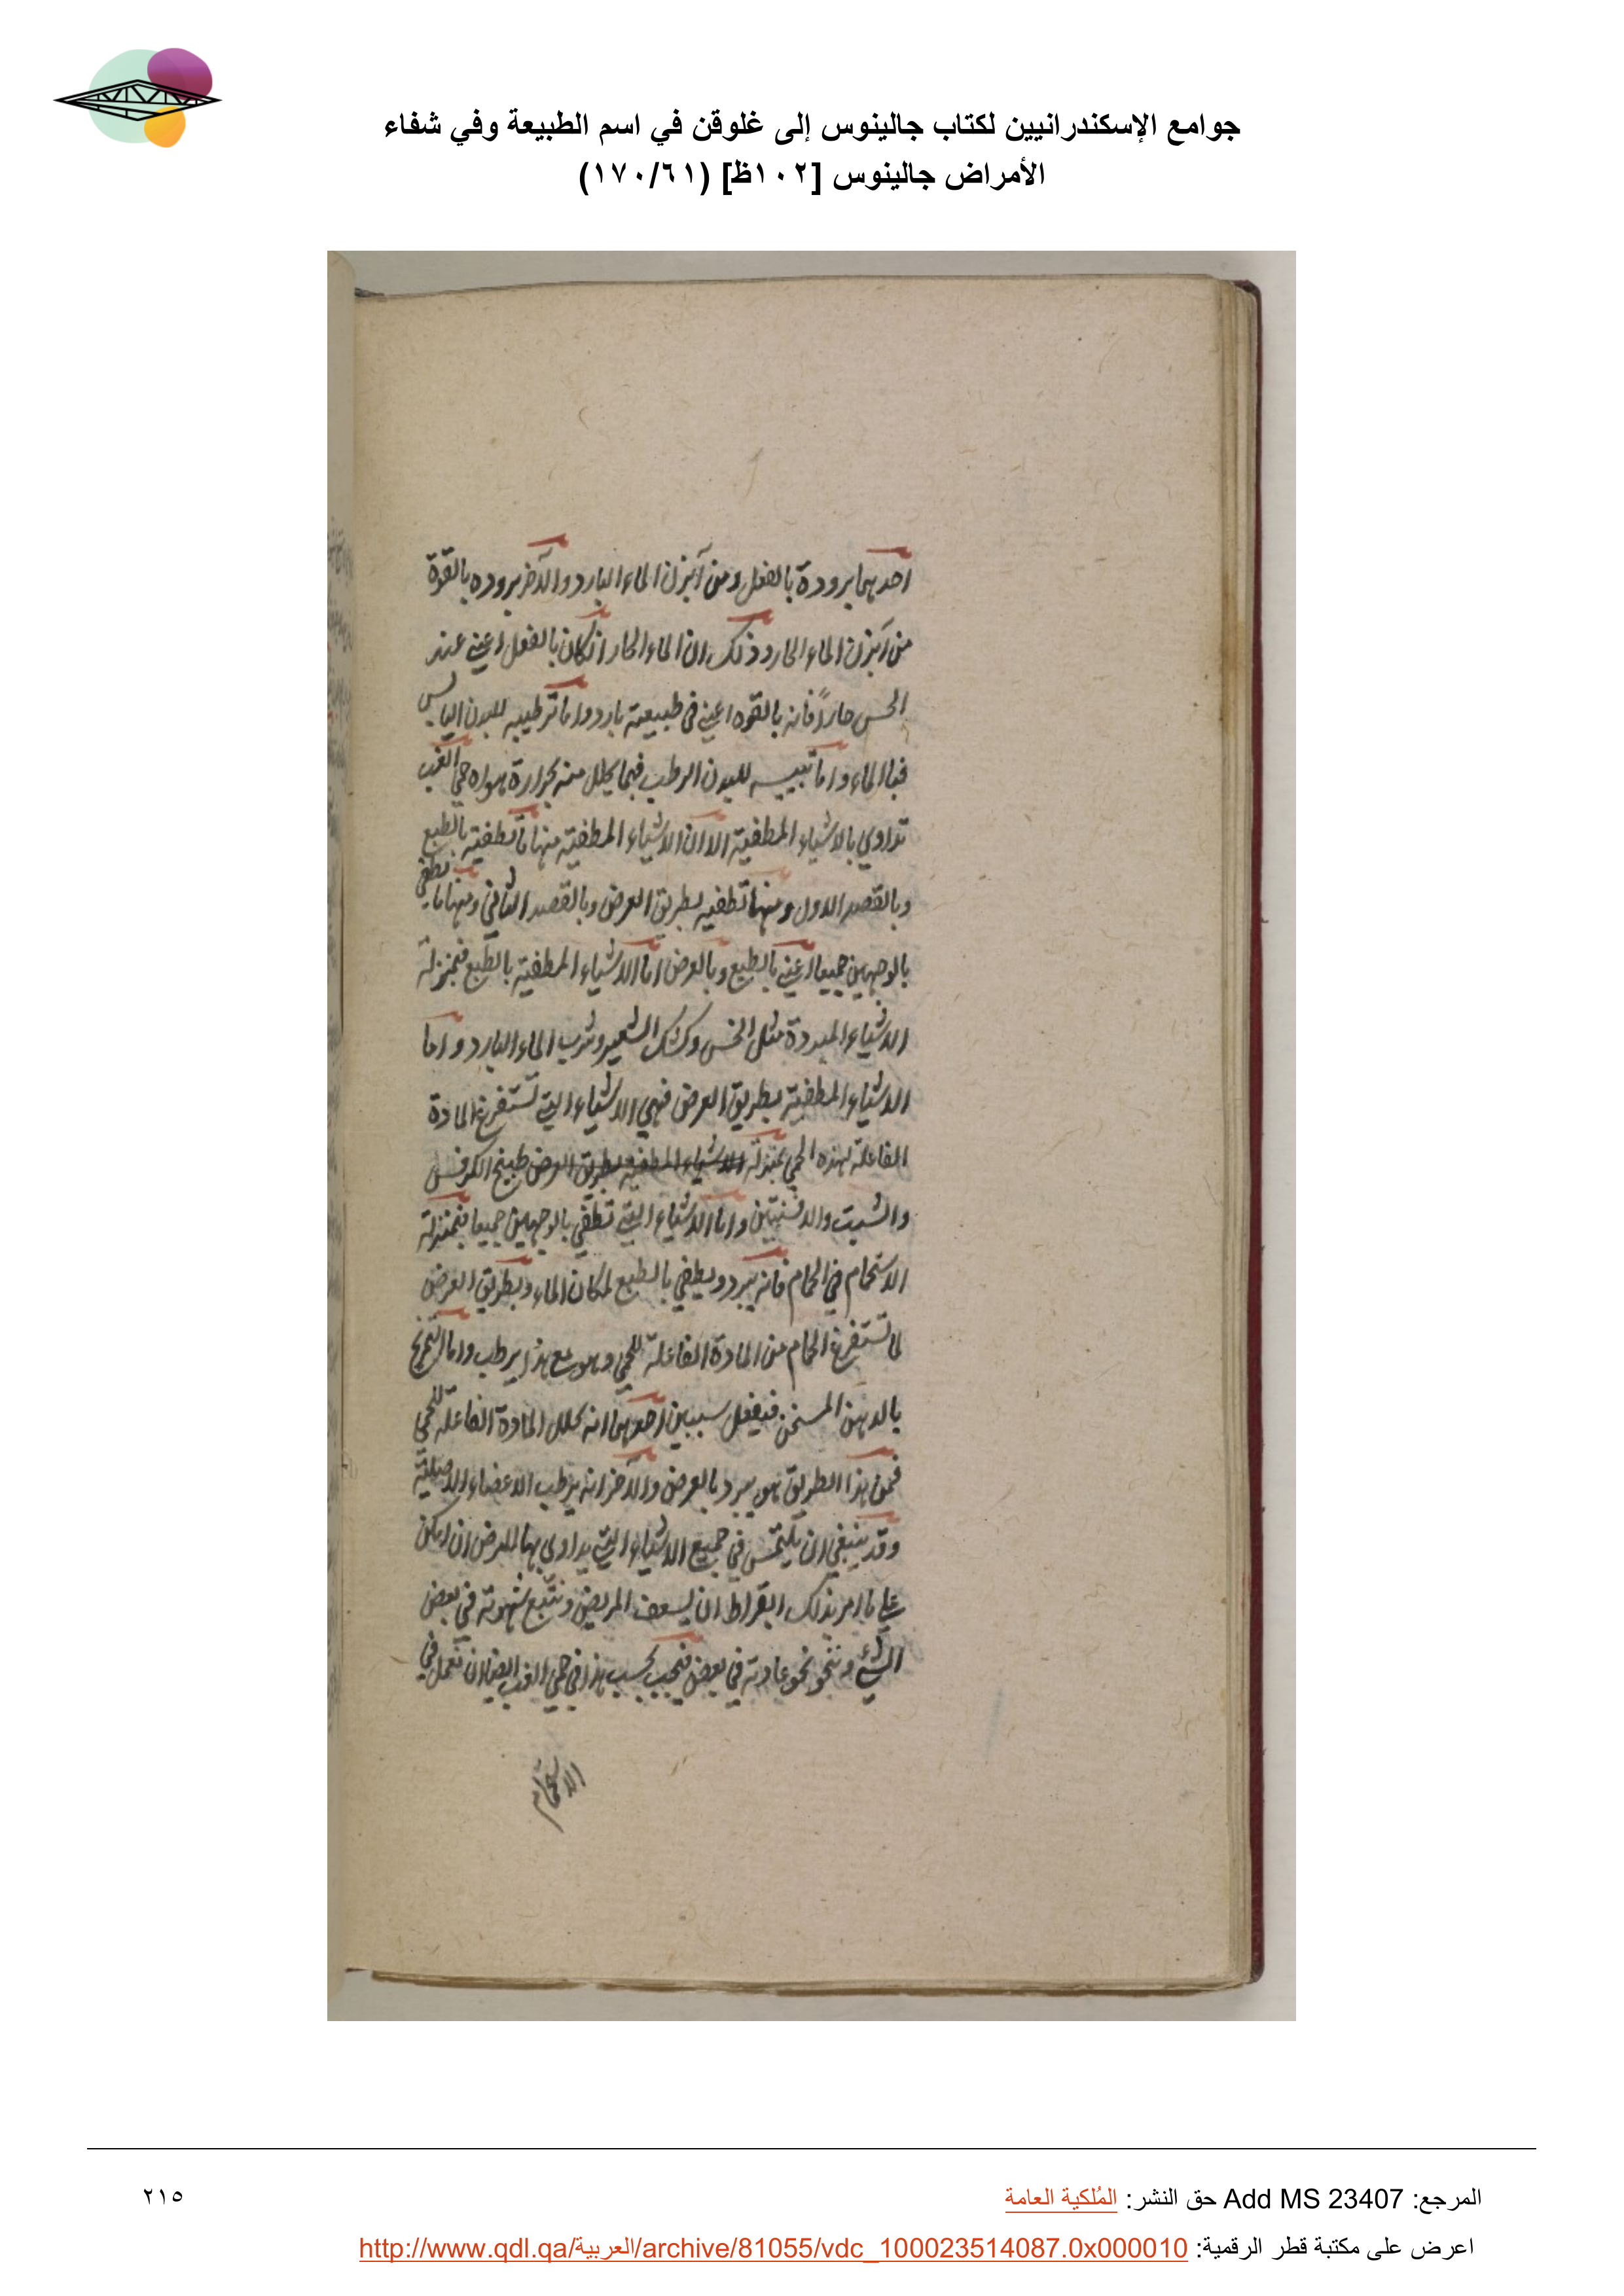 جوامع الإسكندرانيين لكتاب جالينوس إلى غلوقن في اسم الطبيعة وفي شفاء
الأمراض جالينوس [١٠٢ظ] (١٧٠/٦١)
احدىهما برودة بالفعل ومن آبزن الماء البارد والآخر بروده بالقوة
من آبزن الماء الحار وذلك ان الماء الحار انكان بالفعل اعني عند
الحس حاراً فانه بالقوه اعني في طبيعية بارد واما ترطيبه للبدن اليابس
فبالماء واما تيبيسه للبدن الرطب فبما يحلل منه بحرارة هواه حمى الغب
تداوى بالاشياء المطفية الا ان الاشياء المطفية منها ما تطفيته بالطبع
وبالقصد الاول ومنها تطفيه بطريق العرض وبالقصد الثاني ومنها ما تطفي
بالوجهين جميعا اعني بالطبع وبالعرض اما الاشياء المطفية بالطبع فبمنزلة
الاشياء المبردة مثل الخس وكشك الشعير وشرب الماء البارد واما
الاشياء المطفية بطريق العرض فهي الاشياء التي تستفرغ المادة
الفاعلة لهذه الحمى بمنزلة الاشياء المطفية بطريق العرض طبيخ الكرفس
والشبت والافسنتين واما الاشياء التي تطفي بالوجهين جميعا فبمنزلة
الاستحمام في الحمام فانه يبرد ويطفي بالطبع لمكان الماء وبطريق العرض
لما تستفرغ الحمام من المادة الفاعلة للحمى وهو مع هذا يرطب واما التمريخ
بالدهن المسخن فيفعل سببين احدهما انه يحلل المادة الفاعلة للحمى
فمن هذا الطريق هو يبرد بالعرض والآخر انه يرطب الاعضاء الاصلية
وقد ينبغي ان يلتمس في جميع الاشياء التي يداوى بها المرض ان امكن
على ما امر بذلك ابقراط ان يسعف المريض ونتبع شهوته في بعض
الشيء وننحو نحو عادته في بعض فيجب بحسب هذا في حمى الغب ايضا ان نعمل في
الاستحمام
المرجع: Add MS 23407 حق النشر: المُلكية العامة
٢١٥
اعرض على مكتبة قطر الرقمية: http://www.qdl.qa/العربية/archive/81055/vdc_100023514087.0x000010